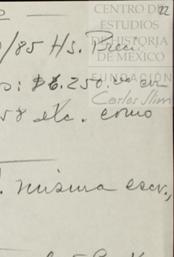 22
CENTRO DE
ESTUDIOS
DE HISTORIA
DE MÉXICO
FUNDACIÓN
Carlos Slim
/85 Hs. Preci.
o: $6.250.00 en
58 etc. como
. misma escr.,